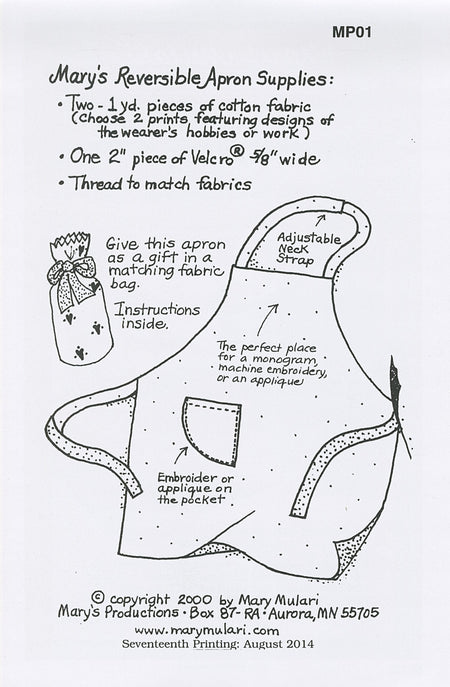 MP01
Mary's Reversible Apron Supplies:
• Two - 1 yd. pieces of cotton fabric
(choose 2 prints, featuring designs of
the wearer's hobbies or work)
• One 2" piece of Velcro® 5/8" wide
• Thread to match fabrics
Adjustable
Neck
Strap
Give this apron
as a gift in a
matching fabric
bag.
Instructions
inside.
The perfect place
for a monogram,
machine embroidery,
or an applique
Embroider or
applique on
the pocket
© copyright 2000 by Mary Mulari
Mary's Productions • Box 87-RA • Aurora, MN 55705
www.marymulari.com
Seventeenth Printing: August 2014